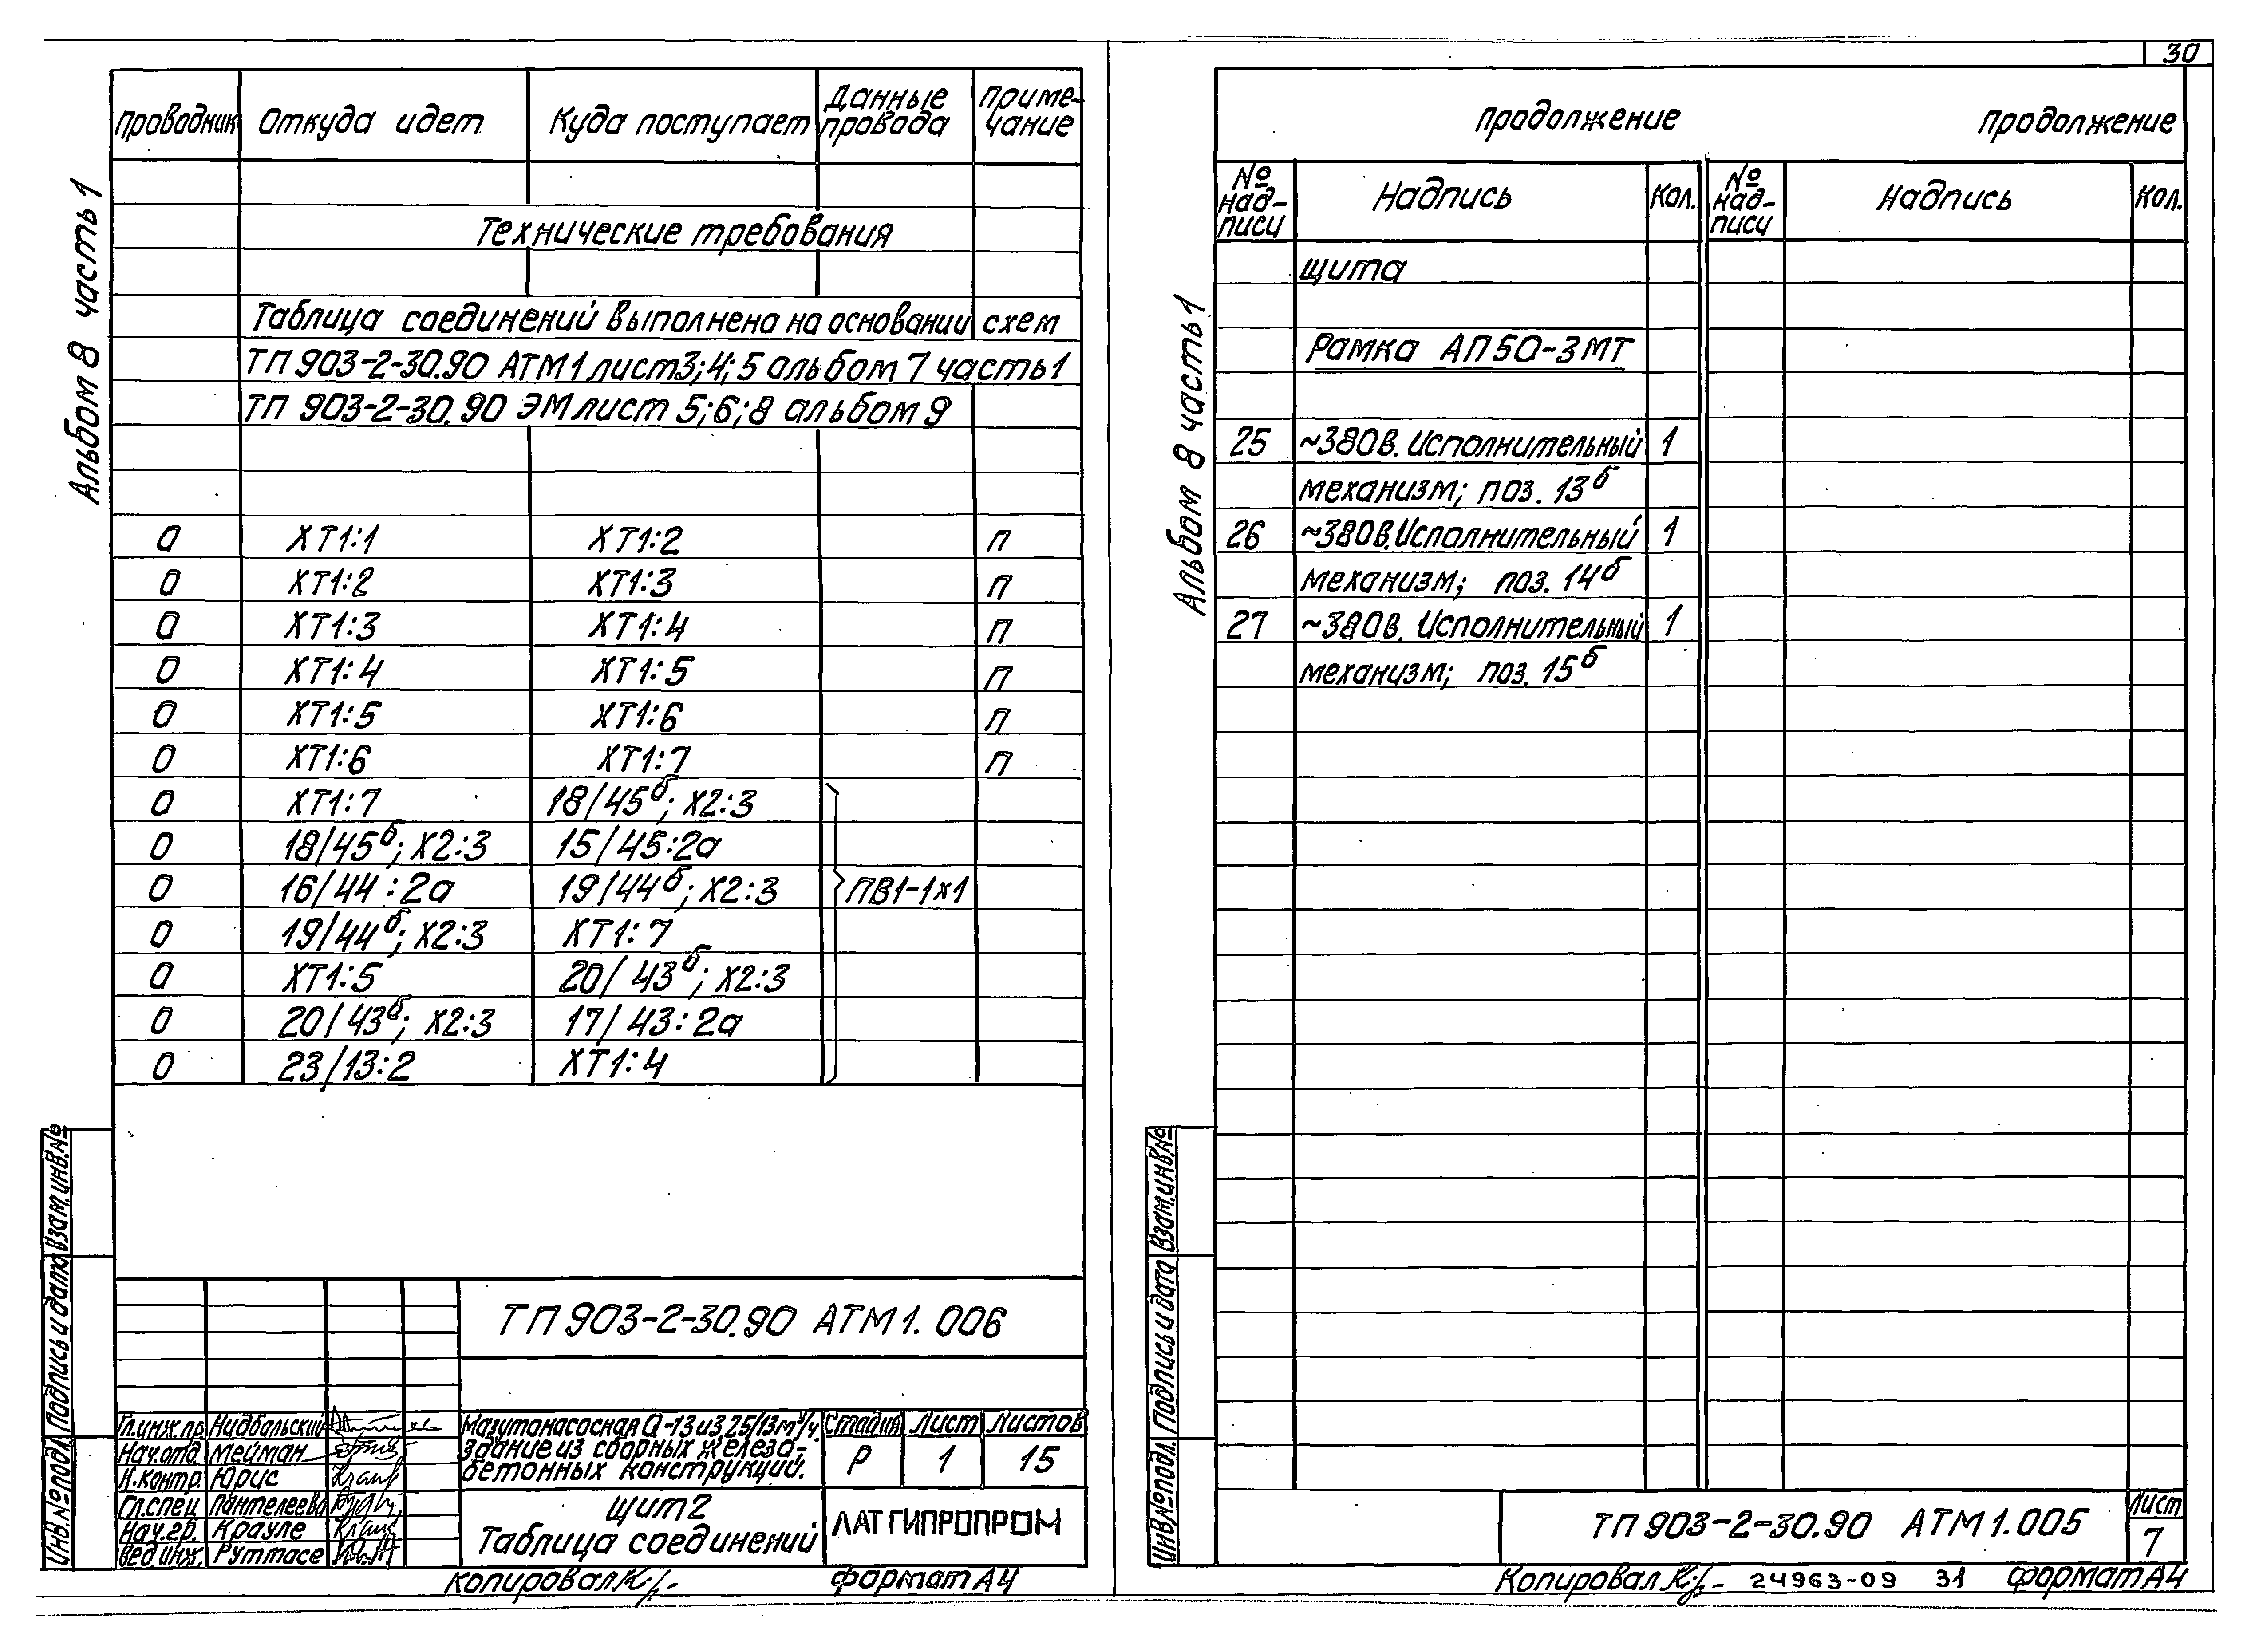 Альбом 8 часть 1
Проводник Откуда идет Куда поступает Данные провода Приме-чание
Технические требования
Таблица соединений выполнена на основании схем
ТП 903-2-30.90 АТМ1 лист 3; 4; 5 альбом 7 часть 1
ТП 903-2-30.90 ЭМ лист 5; 6; 8 альбом 9
0 ХТ1:1 ХТ1:2 П
0 ХТ1:2 ХТ1:3 П
0 ХТ1:3 ХТ1:4 П
0 ХТ1:4 ХТ1:5 П
0 ХТ1:5 ХТ1:6 П
0 ХТ1:6 ХТ1:7 П
0 ХТ1:7 18/45б; Х2:3
0 18/45б; Х2:3 15/45:2а
0 16/44:2а 19/44б; Х2:3 ПВ1-1х1
0 19/44б; Х2:3 ХТ1:7
0 ХТ1:5 20/43б; Х2:3
0 20/43б; Х2:3 17/43:2а
0 23/13:2 ХТ1:4
Инв.№ подл. Подпись и дата Взам.инв.№
ТП 903-2-30.90 АТМ1.006
Гл.инж.пр. Нидбальский
Нач.отд. Мейман
Н.контр. Юрис
Гл.спец. Пантелеева
Нач.гр. Крауле
Вед.инж. Руттасе
Мазутонасосная Q-13 и 3,25/13 м³/ч.
Здание из сборных железо-
бетонных конструкций.
Стадия Лист Листов
Р 1 15
Щит 2
Таблица соединений
ЛАТГИПРОПРОМ
Копировал
Формат А4
30
Альбом 8 часть 1
Продолжение Продолжение
№ над-писи Надпись Кол. № над-писи Надпись Кол.
щита
Рамка АП50-3МТ
25 ~380в. Исполнительный 1
механизм; поз. 13б
26 ~380в. Исполнительный 1
механизм; поз. 14б
27 ~380в. Исполнительный 1
механизм; поз. 15б
Инв.№ подл. Подпись и дата Взам.инв.№
ТП 903-2-30.90 АТМ1.005
Лист
7
Копировал 24963-09 31 Формат А4